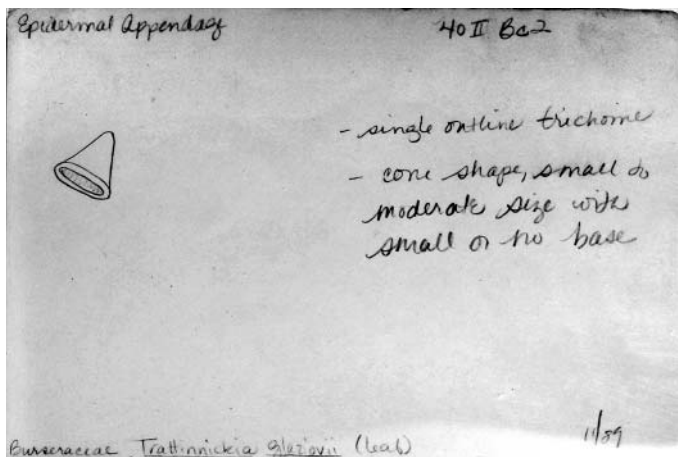 Epidermal Appendag
40 II Bc2
- single outline trichome
- cone shape, small to
moderate size with
small or no base
11/89
Burseraceae Trattinnickia glaziovii (leaf)